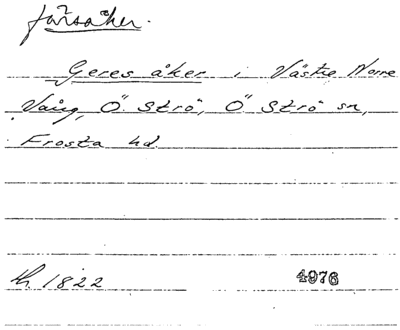 Geres åker i Västre Norre
Vång, Ö. Strö, Ö Strö sn,
Frosta hd.
1822 4976